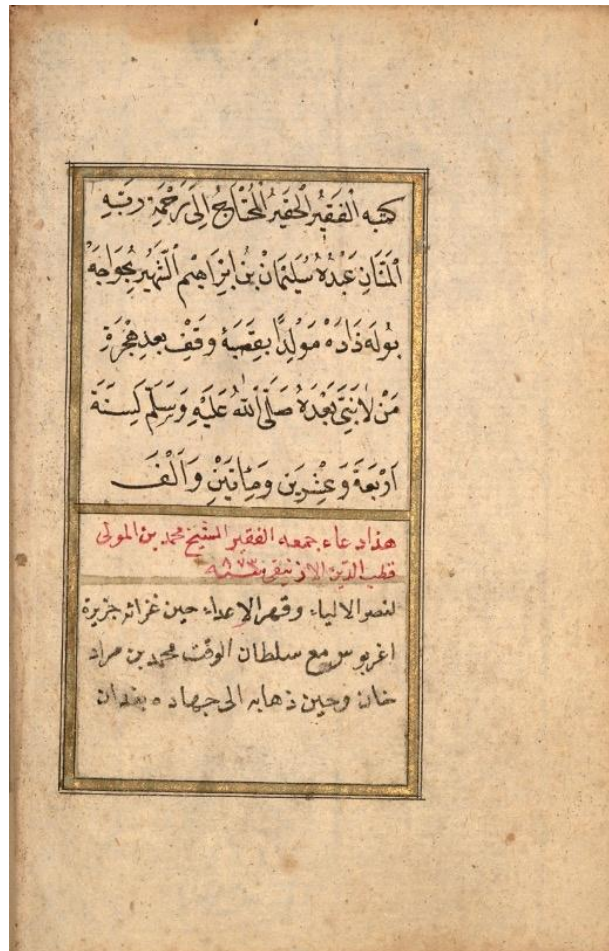 كتبه الفقير الحقير المحتاج الى رحمة ربّه
المنّان عبده سليمان بن ابراهيم الشهير بخواجه
بوله زاده مولدًا بقصبهٔ وقف بعد هجرة
من لا نبيّ بعده صلّى الله عليه وسلّم لسنة
اربعة وعشرين ومأتين والف
هذا دعاء جمعه الفقير الشيخ محمد بن المولى
قطب الدين الازنيقى ٨٧٣
لنصر الالياء وقهر الاعداء حين غزائه جزيرة
اغربوس مع سلطان الوقت محمد بن مراد
خان وحين ذهابه الى جهاده بغدان